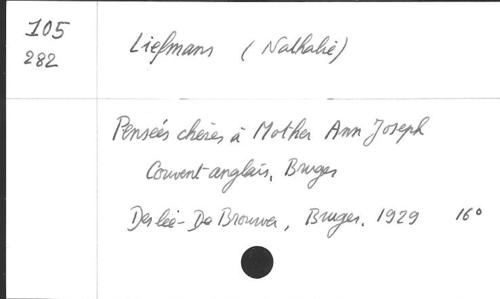 105
282
Liefmans (Nathalie)
Pensées chères à Mother Ann Joseph
Couvent-anglais, Bruges
Deslée-De Brouwer, Bruges. 1929 16°